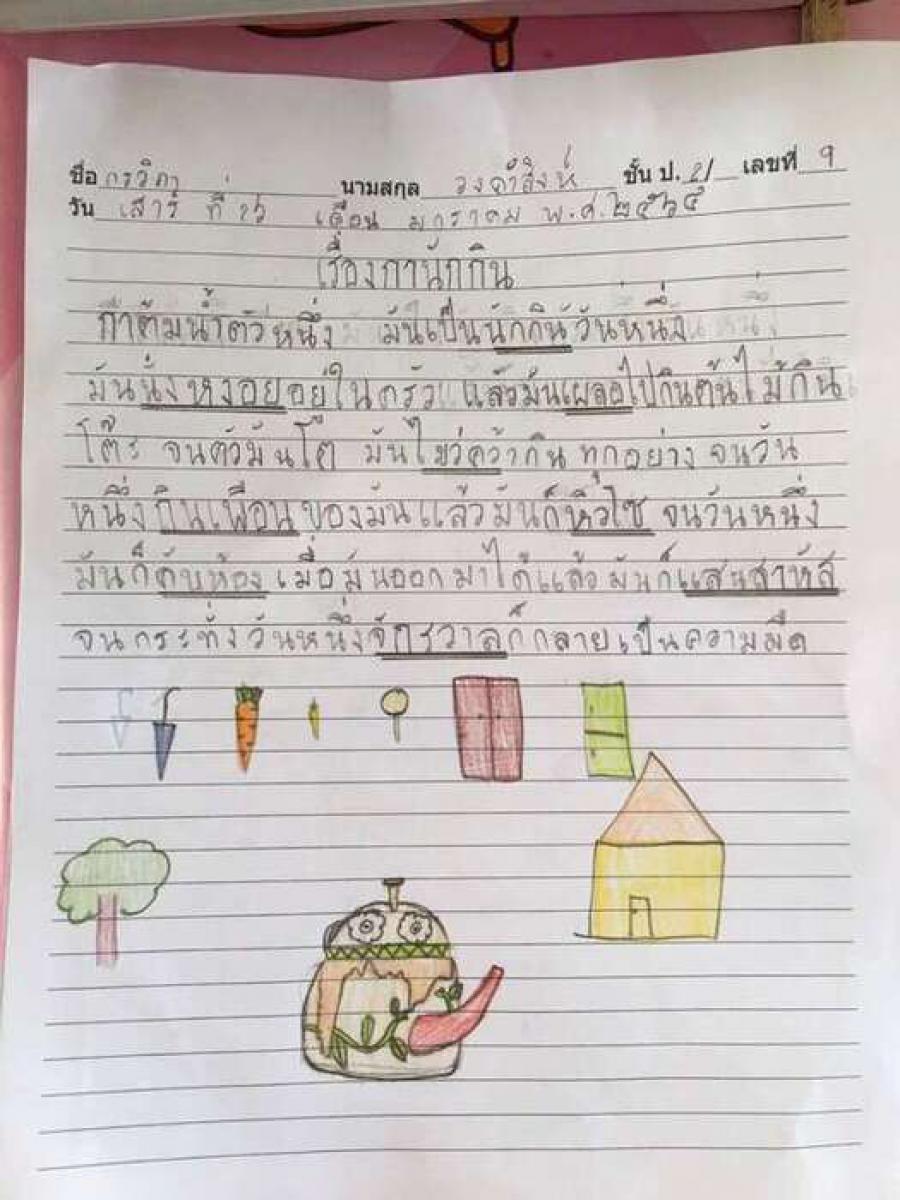 ชื่อ กรวิภา นามสกุล วงคำสิงห์ ชั้น ป. 2/ เลขที่ 9
วัน เสาร์ ที่ เดือน มกราคม พ.ศ.๒๕๖๕
เรื่องกานักกิน
ก้าต้มน้ำตัวหนึ่ง มันเป็นนักกินวันหนึ่ง
มันนั่งหงอยอยู่ในครัว แล้วมันเผลอไปกินต้นไม้กิน
โต๊ะ จนตัวมันโต มันไขว่คว้ากินทุกอย่าง จนวัน
หนึ่งกินเพื่อนของมันแล้วมันก็หิวโซ จนวันหนึ่ง
มันก็คับห้อง เมื่อมันออกมาได้แล้วมันก็แสนสาหัส
จนกระทั่งวันหนึ่งจักรวาลก็กลายเป็นความมืด